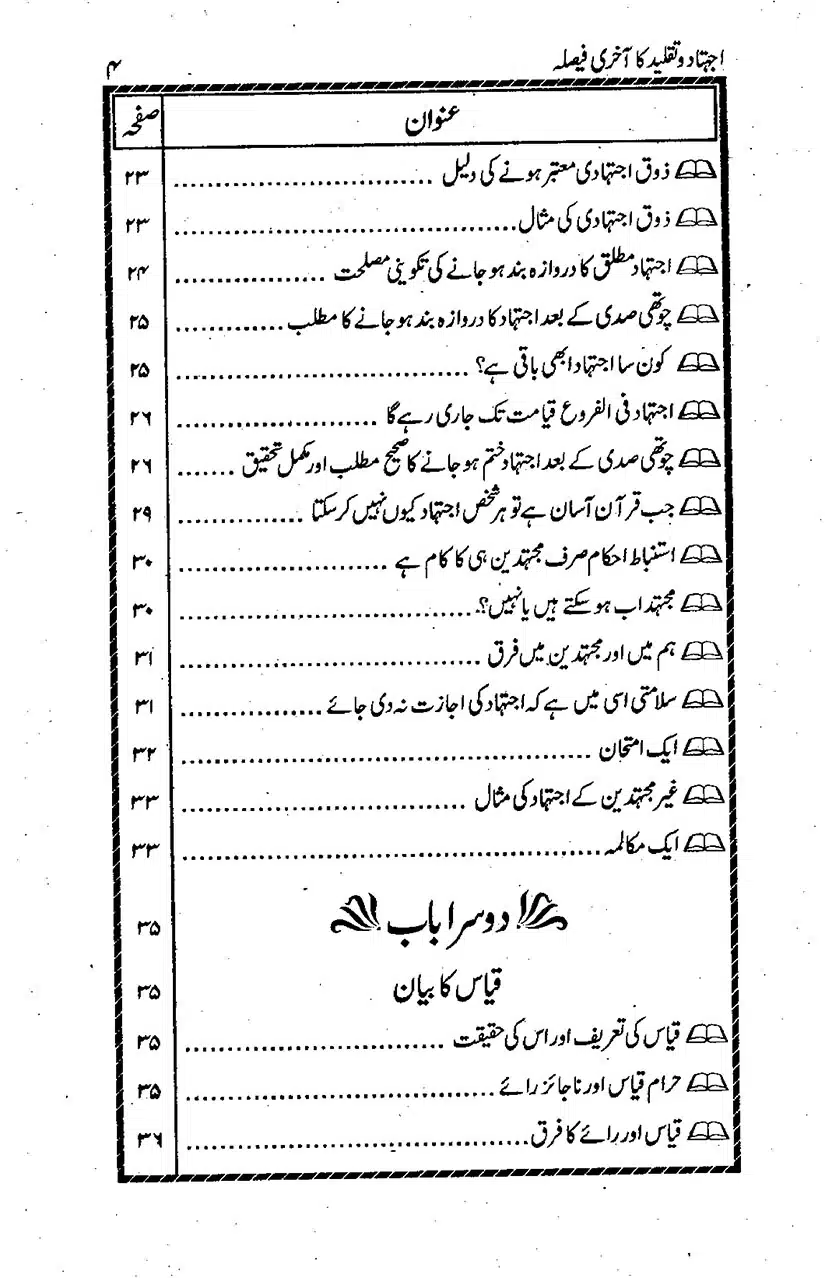 اجتہاد و تقلید کا آخری فیصلہ ۴
عنوان صفحہ
ذوق اجتہادی معتبر ہونے کی دلیل .............................. ۲۳
ذوق اجتہادی کی مثال ........................................ ۲۳
اجتہاد مطلق کا دروازہ بند ہوجانے کی تکوینی مصلحت .................. ۲۴
چوتھی صدی کے بعد اجتہاد کا دروازہ بند ہو جانے کا مطلب ............. ۲۵
کون سا اجتہاد ابھی باقی ہے؟ .................................. ۲۵
اجتہاد فی الفروع قیامت تک جاری رہے گا ........................ ۲۶
چوتھی صدی کے بعد اجتہاد ختم ہو جانے کا صحیح مطلب اور مکمل تحقیق ....... ۲۶
جب قرآن آسان ہے تو ہر شخص اجتہاد کیوں نہیں کر سکتا ............... ۲۹
استنباط احکام صرف مجتہدین ہی کا کام ہے ......................... ۳۰
مجتہد اب ہو سکتے ہیں یا نہیں؟ .................................. ۳۰
ہم میں اور مجتہدین میں فرق ................................... ۳۱
سلامتی اسی میں ہے کہ اجتہاد کی اجازت نہ دی جائے ................. ۳۱
ایک امتحان ................................................ ۳۲
غیر مجتہدین کے اجتہاد کی مثال ................................. ۳۳
ایک مکالمہ ................................................ ۳۳
دوسرا باب ۳۵
قیاس کا بیان ۳۵
قیاس کی تعریف اور اس کی حقیقت .............................. ۳۵
حرام قیاس اور ناجائز رائے .................................... ۳۵
قیاس اور رائے کا فرق ....................................... ۳۶